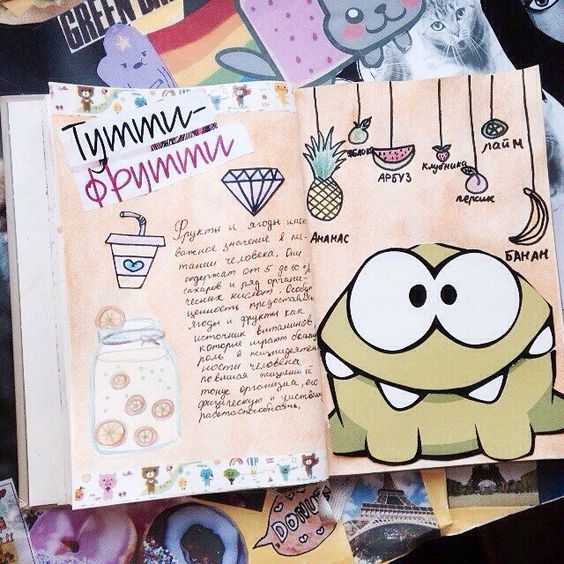 GREEN DAY
Тутти-
фрутти
Фрукты и ягоды имеют
важное значение в пи-
тании человека. Они
содержат от 5 до 10 %
сахаров и ряд органи-
ческих кислот. Особую
ценность представляют
ягоды и фрукты как
источник витаминов,
которые играют большую
роль в жизнедеятель-
ности человека
повышая жизненный
тонус организма, его
физическую и умственную
работоспособность.
яблоко
АРБУЗ
клубника
лайм
персик
АНАНАС
БАНАН
DONUTS